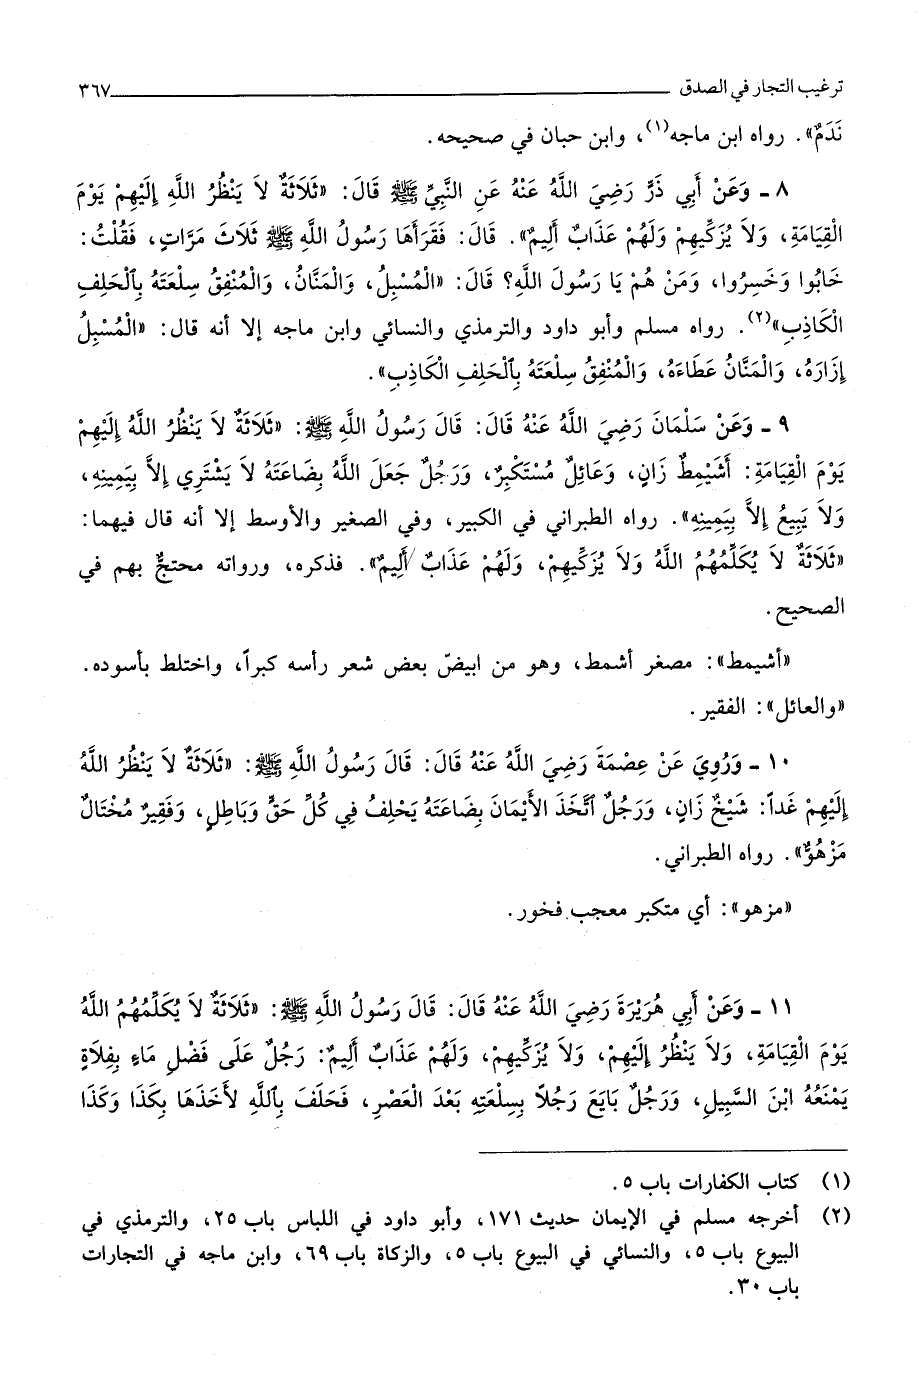 ترغيب التجار في الصدق ٣٦٧
نَدَمٌ». رواه ابن ماجه(١)، وابن حبان في صحيحه.
٨ - وَعَنْ أَبِي ذَرٍّ رَضِيَ اللَّهُ عَنْهُ عَنِ النَّبِيِّ ﷺ قَالَ: «ثَلَاثَةٌ لاَ يَنْظُرُ اللَّهُ إِلَيْهِمْ يَوْمَ
الْقِيَامَةِ، وَلاَ يُزَكِّيهِمْ وَلَهُمْ عَذَابٌ أَلِيمٌ». قَالَ: فَقَرَأَهَا رَسُولُ اللَّهِ ﷺ ثَلَاثَ مَرَّاتٍ، فَقُلْتُ:
خَابُوا وَخَسِرُوا، وَمَنْ هُمْ يَا رَسُولَ اللَّهِ؟ قَالَ: «الْمُسْبِلُ، وَالْمَنَّانُ، وَالْمُنْفِقُ سِلْعَتَهُ بِٱلْحَلِفِ
الْكَاذِبِ»(٢). رواه مسلم وأبو داود والترمذي والنسائي وابن ماجه إلا أنه قال: «الْمُسْبِلُ
إِزَارَهُ، وَالْمَنَّانُ عَطَاءَهُ، وَالْمُنْفِقُ سِلْعَتَهُ بِٱلْحَلِفِ الْكَاذِبِ».
٩ - وَعَنْ سَلْمَانَ رَضِيَ اللَّهُ عَنْهُ قَالَ: قَالَ رَسُولُ اللَّهِ ﷺ: «ثَلَاثَةٌ لاَ يَنْظُرُ اللَّهُ إِلَيْهِمْ
يَوْمَ الْقِيَامَةِ: أُشَيْمِطٌ زَانٍ، وَعَائِلٌ مُسْتَكْبِرٌ، وَرَجُلٌ جَعَلَ اللَّهُ بِضَاعَتَهُ لاَ يَشْتَرِي إِلاَّ بِيَمِينِهِ،
وَلاَ يَبِيعُ إِلاَّ بِيَمِينِهِ». رواه الطبراني في الكبير، وفي الصغير والأوسط إلا أنه قال فيهما:
«ثَلَاثَةٌ لاَ يُكَلِّمُهُمُ اللَّهُ وَلاَ يُزَكِّيهِمْ، وَلَهُمْ عَذَابٌ أَلِيمٌ». فذكره، ورواته محتجٌّ بهم في
الصحيح.
«أشيمط»: مصغر أشمط، وهو من ابيضّ بعض شعر رأسه كبراً، واختلط بأسوده.
«والعائل»: الفقير.
١٠ - وَرُوِيَ عَنْ عِصْمَةَ رَضِيَ اللَّهُ عَنْهُ قَالَ: قَالَ رَسُولُ اللَّهِ ﷺ: «ثَلَاثَةٌ لاَ يَنْظُرُ اللَّهُ
إِلَيْهِمْ غَداً: شَيْخٌ زَانٍ، وَرَجُلٌ ٱتَّخَذَ الأَيْمَانَ بِضَاعَتَهُ يَحْلِفُ فِي كُلِّ حَقٍّ وَبَاطِلٍ، وَفَقِيرٌ مُخْتَالٌ
مَزْهُوٌّ». رواه الطبراني.
«مزهو»: أي متكبر معجب فخور.
١١ - وَعَنْ أَبِي هُرَيْرَةَ رَضِيَ اللَّهُ عَنْهُ قَالَ: قَالَ رَسُولُ اللَّهِ ﷺ: «ثَلَاثَةٌ لاَ يُكَلِّمُهُمُ اللَّهُ
يَوْمَ الْقِيَامَةِ، وَلاَ يَنْظُرُ إِلَيْهِمْ، وَلاَ يُزَكِّيهِمْ، وَلَهُمْ عَذَابٌ أَلِيمٌ: رَجُلٌ عَلَى فَضْلِ مَاءٍ بِفَلاَةٍ
يَمْنَعُهُ ابْنَ السَّبِيلِ، وَرَجُلٌ بَايَعَ رَجُلاً بِسِلْعَتِهِ بَعْدَ الْعَصْرِ، فَحَلَفَ بِٱللَّهِ لأَخَذَهَا بِكَذَا وَكَذَا
(١) كتاب الكفارات باب ٥.
(٢) أخرجه مسلم في الإيمان حديث ١٧١، وأبو داود في اللباس باب ٢٥، والترمذي في
البيوع باب ٥، والنسائي في البيوع باب ٥، والزكاة باب ٦٩، وابن ماجه في التجارات
باب ٣٠.